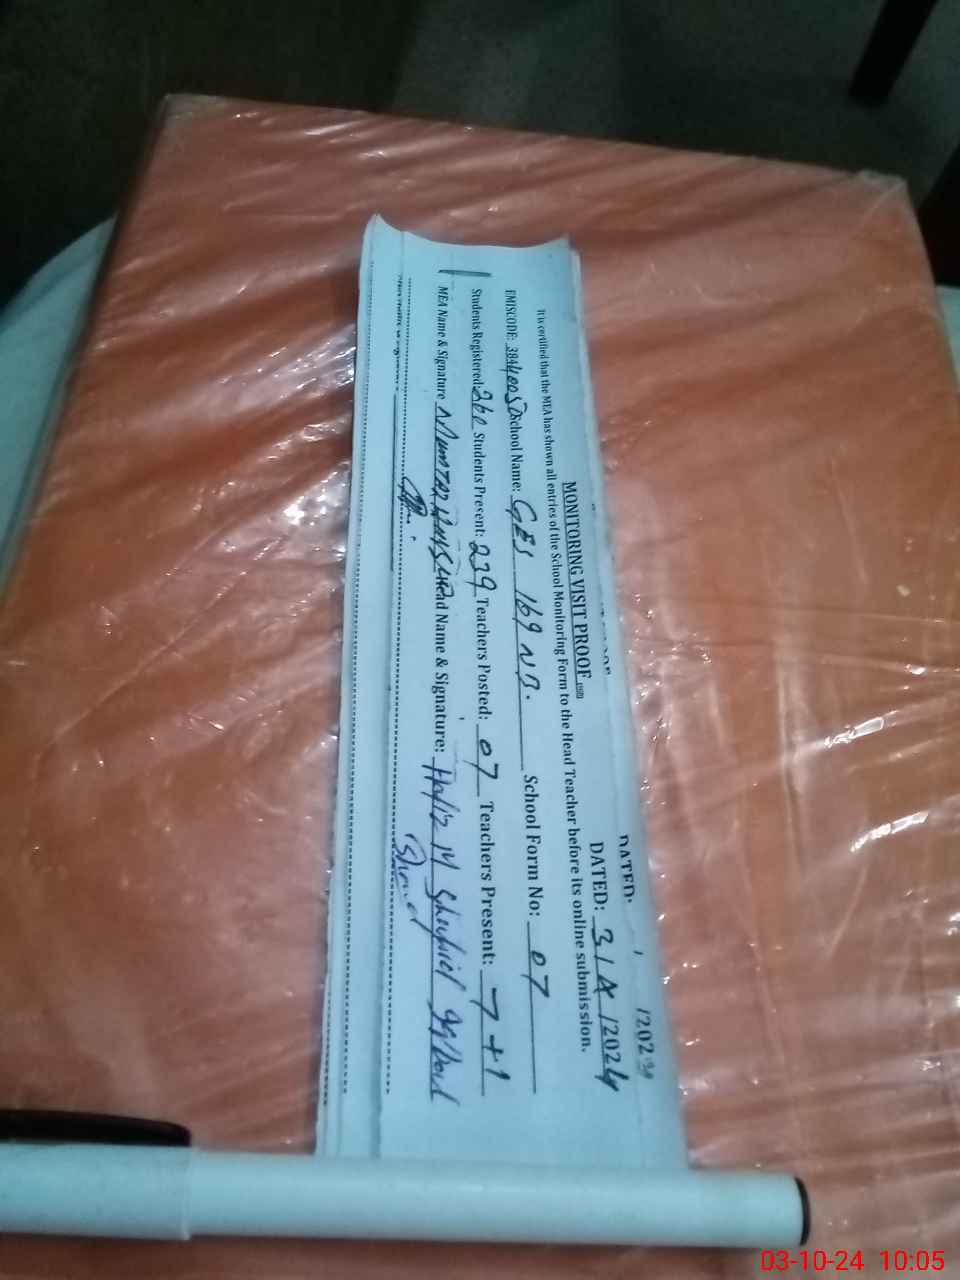 DATED: / /202
MONITORING VISIT PROOF DATED: 3/ /2024
It is certified that the MEA has shown all entries of the School Monitoring Form to the Head Teacher before its online submission.
EMISCODE: School Name: GES 169 NB. School Form No: 07
Students Registered: Students Present: 239 Teachers Posted: 07 Teachers Present: 7+1
MEA Name & Signature Head Name & Signature: Hafiz M
03-10-24 10:05